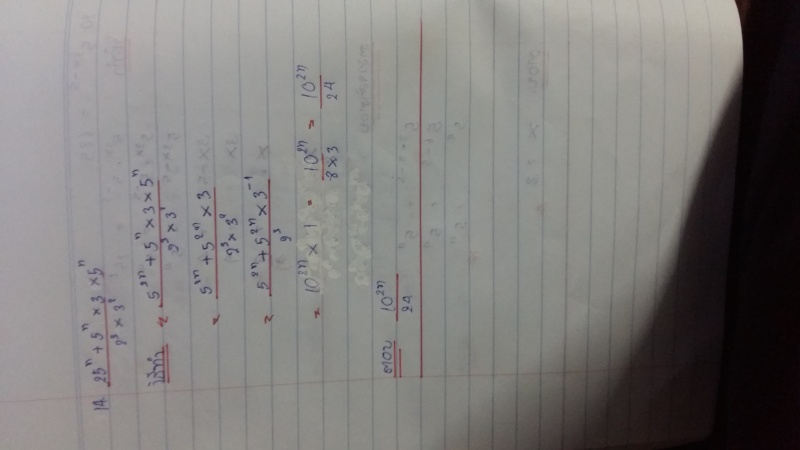 14. 25ⁿ + 5ⁿ × 3 × 5ⁿ / 2³ × 3²
วิธีทำ = 5²ⁿ + 5ⁿ × 3 × 5ⁿ / 2³ × 3²
= 5²ⁿ + 5²ⁿ × 3 / 2³ × 3²
= 5²ⁿ + 5²ⁿ × 3⁻¹ / 2³
= 10²ⁿ × 1 = 10²ⁿ / 8 × 3 = 10²ⁿ / 24
ตอบ 10²ⁿ / 24